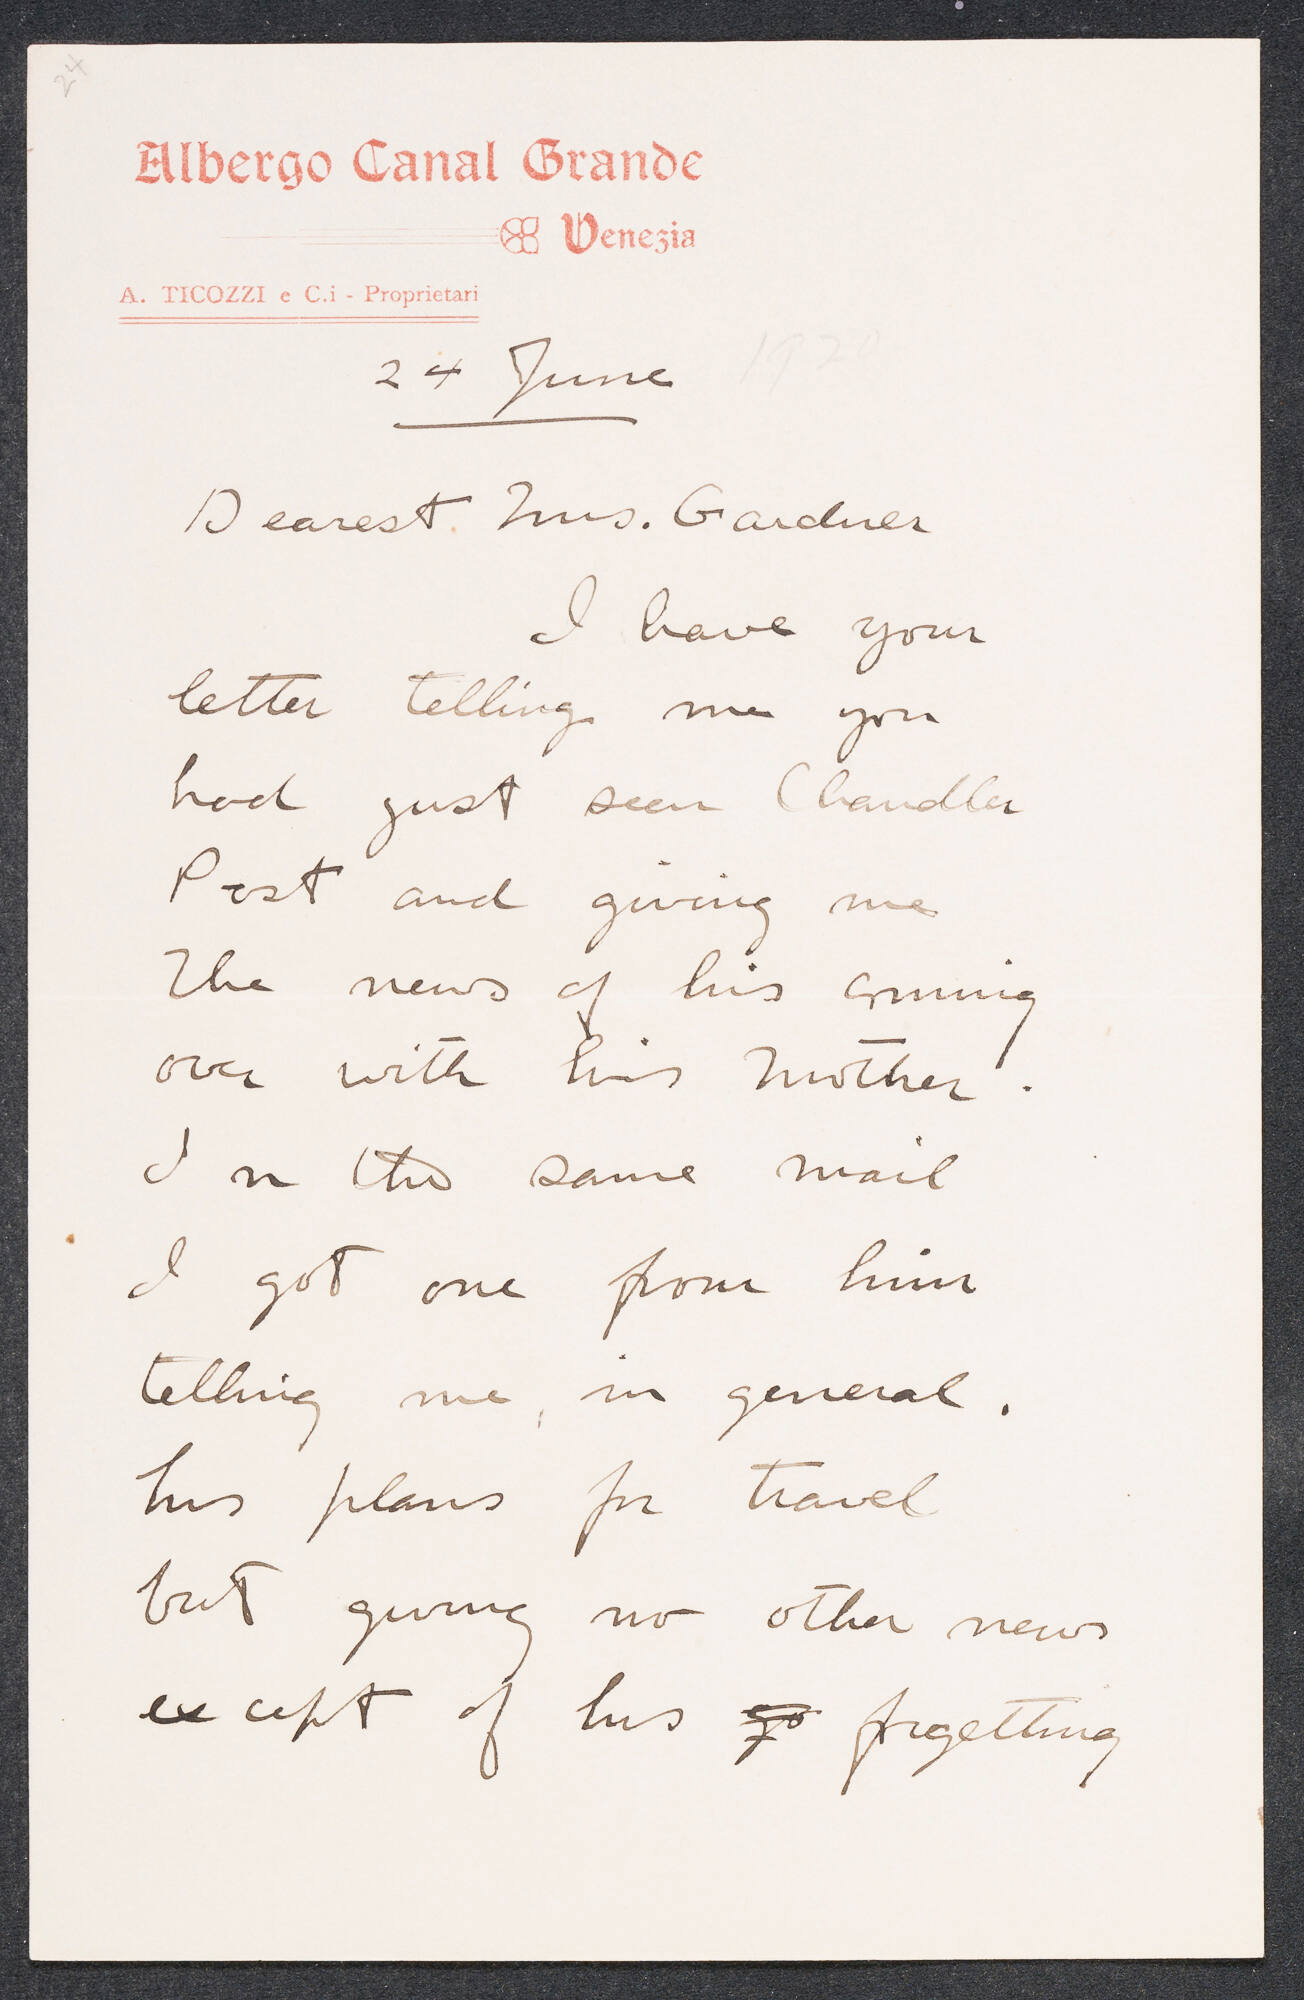 24
Albergo Canal Grande
Venezia
A. TICOZZI e C.i - Proprietari
24 June 1920
Dearest Mrs. Gardner
I have your
letter telling me you
had just seen Chandler
Post and giving me
the news of his coming
over with his mother.
In the same mail
I got one from him
telling me, in general,
his plans for travel
but giving no other news
except of his forgetting